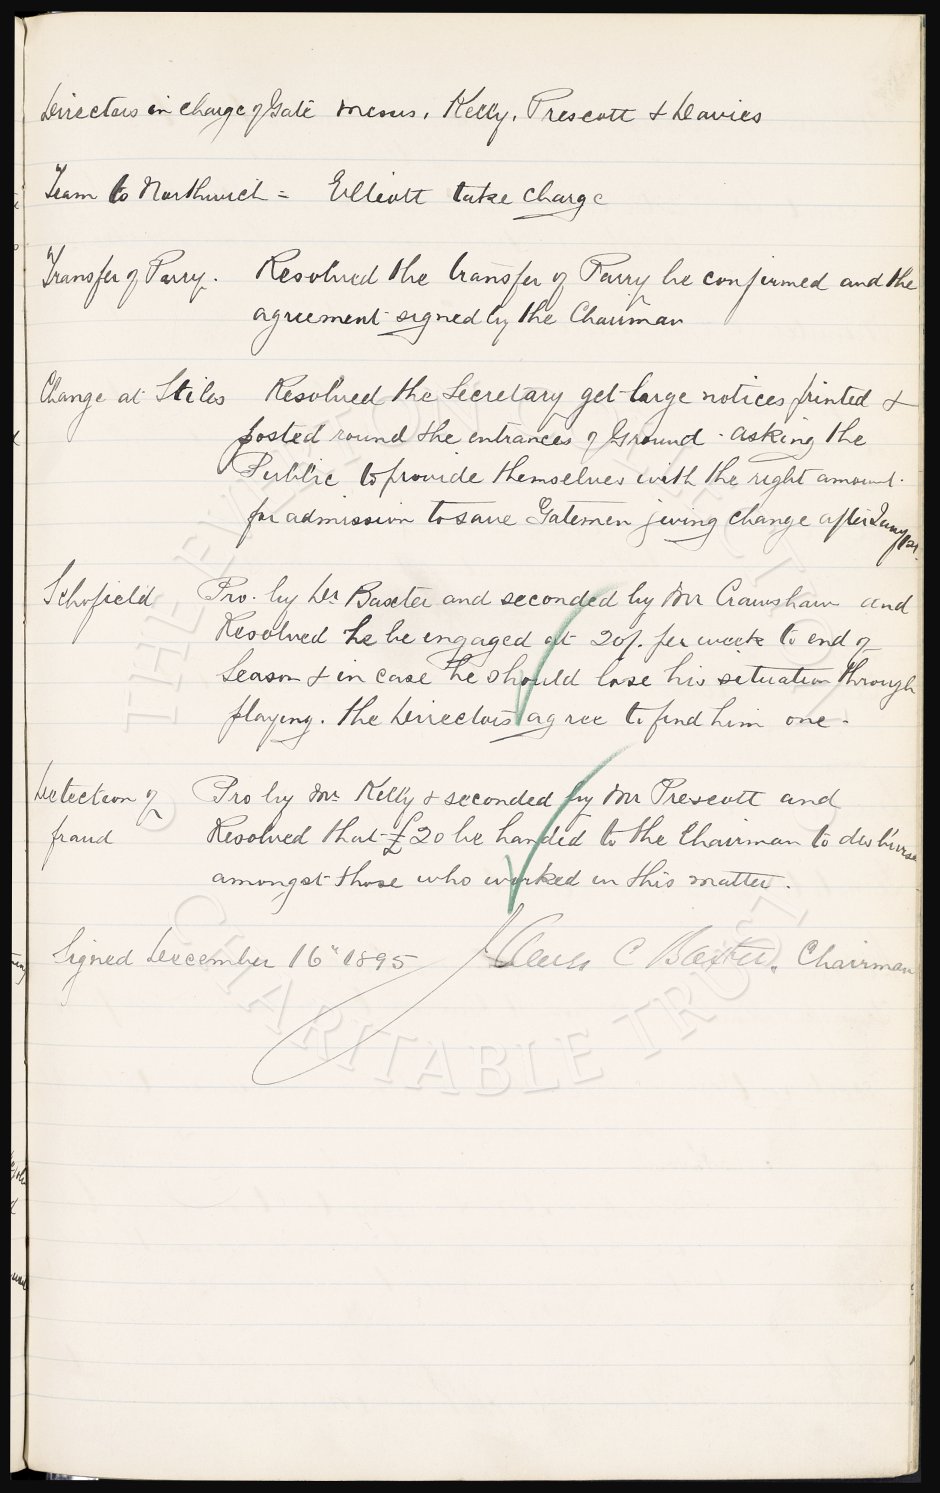 Directors in charge of Gate Messrs. Kelly, Prescott & Davies
Team to Northwich = Elliott take charge
Transfer of Parry. Resolved the transfer of Parry be confirmed and the
agreement signed by the Chairman
Change at Stiles Resolved the Secretary get large notices printed &
posted round the entrances of Ground - asking the
Public to provide themselves with the right amount
for admission to save Gatemen giving change after Jany 1st.
Schofield Pro. by Dr Baxter and seconded by Mr Crawshaw and
Resolved he be engaged at 20/. per week to end of
Season & in case he should lose his situation through
playing. the Directors agree to find him one -
Detection of Pro by Mr. Kelly & seconded by Mr Prescott and
fraud Resolved that £20 be handed to the Chairman to disburse
amongst those who worked in this matter.
Signed December 16th 1895 James C Baxter. Chairman
© THE EVERTON COLLECTION
CHARITABLE TRUST